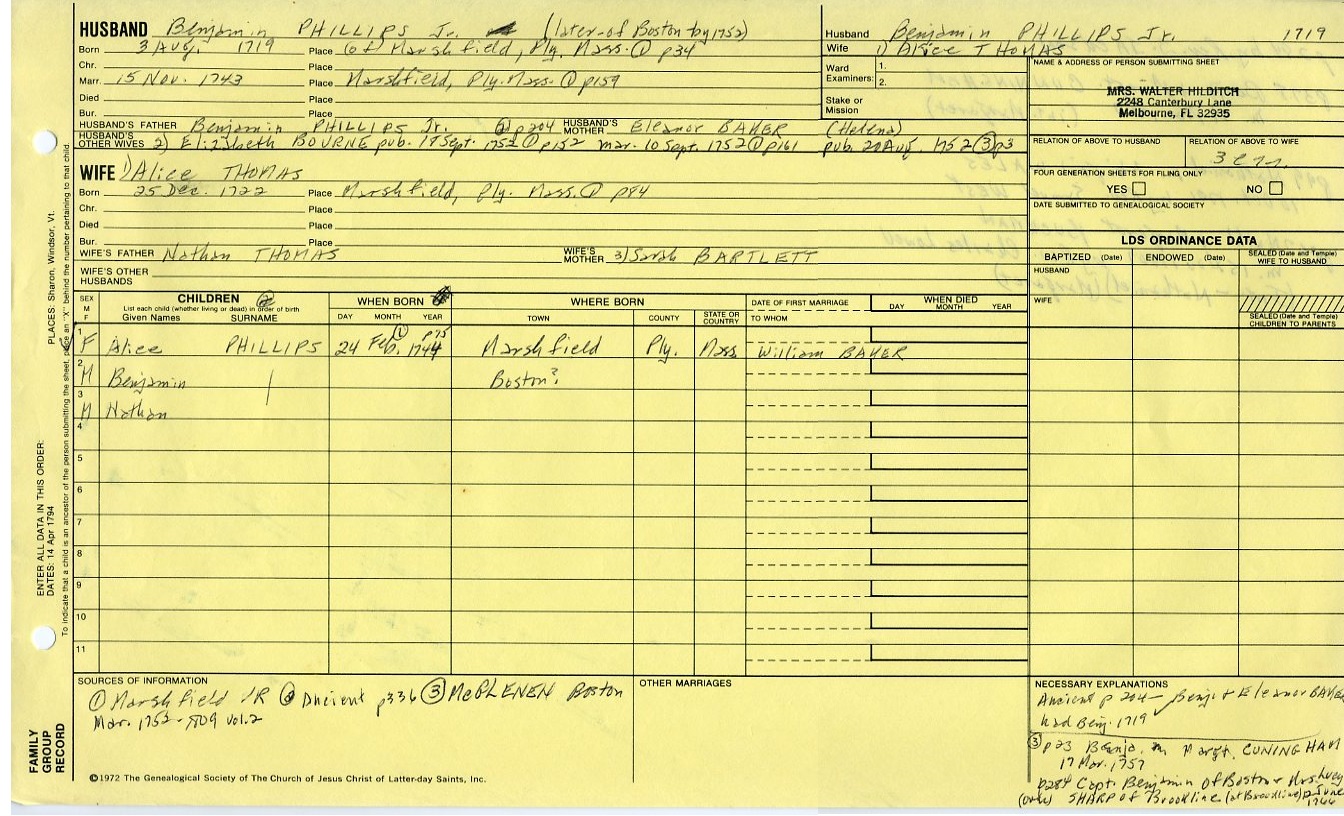 HUSBAND Benjamin PHILLIPS Jr. (later of Boston by 1752)
Born 3 Aug. 1719 Place (of) Marshfield, Ply. Mass. ① p34
Chr. Place
Marr. 15 Nov. 1743 Place Marshfield, Ply. Mass. ① p159
Died Place
Bur. Place
HUSBAND'S FATHER Benjamin PHILLIPS Jr. ② p204 HUSBAND'S MOTHER Eleanor BAKER (Helena)
HUSBAND'S OTHER WIVES 2) Elizabeth BOURNE pub. Sept. 1752 ① p152 mar. 10 Sept. 1752 ① p161 pub. 20 Aug. 1752 ③ p3
WIFE 1) Alice THOMAS
Born 25 Dec. 1722 Place Marshfield, Ply. Mass. ① p84
Chr. Place
Died Place
Bur. Place
WIFE'S FATHER Nathan THOMAS WIFE'S MOTHER 3) Sarah BARTLETT
WIFE'S OTHER HUSBANDS
Husband Benjamin PHILLIPS Jr. 1719
Wife 1) Alice THOMAS
Ward Examiners: 1.
2.
Stake or Mission
NAME & ADDRESS OF PERSON SUBMITTING SHEET
MRS. WALTER HILDITCH
2248 Canterbury Lane
Melbourne, FL 32935
RELATION OF ABOVE TO HUSBAND RELATION OF ABOVE TO WIFE
FOUR GENERATION SHEETS FOR FILING ONLY
YES NO
DATE SUBMITTED TO GENEALOGICAL SOCIETY
LDS ORDINANCE DATA
BAPTIZED (Date) ENDOWED (Date) SEALED (Date and Temple) WIFE TO HUSBAND
HUSBAND
WIFE
SEALED (Date and Temple) CHILDREN TO PARENTS
SEX M F
CHILDREN ②
List each child (whether living or dead) in order of birth
Given Names SURNAME
WHEN BORN
DAY MONTH YEAR
WHERE BORN
TOWN COUNTY STATE OR COUNTRY
DATE OF FIRST MARRIAGE
TO WHOM
WHEN DIED
DAY MONTH YEAR
1 F Alice PHILLIPS 24 Feb. 1744 ① p75 Marshfield Ply. Mass William BAKER
2 M Benjamin Boston?
3 M Nathan
4
5
6
7
8
9
10
11
SOURCES OF INFORMATION
① Marshfield VR ② Ancient p336 ③ Boston
Mar. 1752-1809 vol.2
OTHER MARRIAGES
NECESSARY EXPLANATIONS
Ancient p 204 — Benj. + Eleanor BAKER
had Benj. 1719
③ p23 Benja. m Margt. CUNINGHAM
17 Mar. 1757
p284 Capt. Benjamin of Boston + Mrs. Lucy
SHARP of Brookline (at Brookline) June
©1972 The Genealogical Society of The Church of Jesus Christ of Latter-day Saints, Inc.
FAMILY GROUP RECORD
ENTER ALL DATA IN THIS ORDER:
DATES: 14 Apr 1794
PLACES: Sharon, Windsor, Vt.
To indicate that a child is an ancestor of the person submitting the sheet, place an "X" behind the number pertaining to that child.